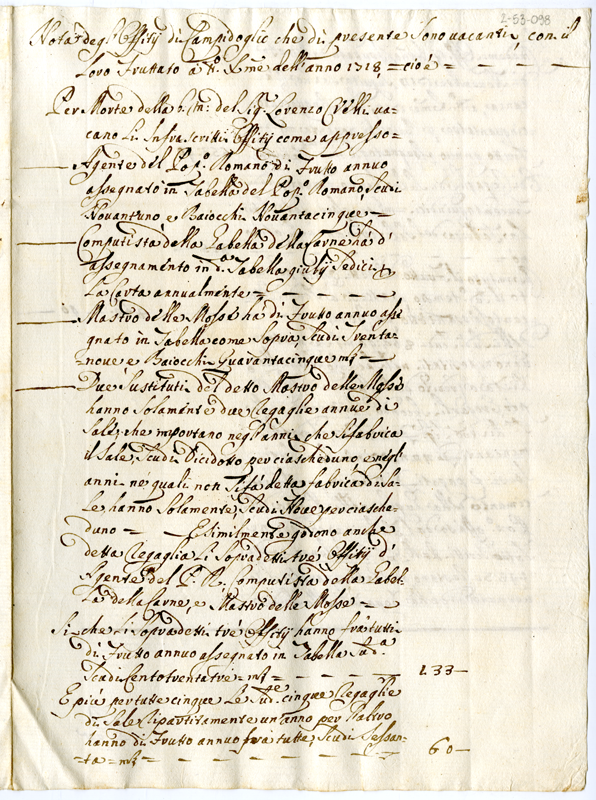 2-53-098
Nota degl' Offitij di Campidoglio che di presente sono vacanti, con il
loro fruttato a dell'anno 1718, cioè
Per Morte della b: m: del Sig. Lorenzo va-
cano li infrascritti Offitij come appresso-
Agente del Pop.º Romano di frutto annuo
assegnato in Tabella del Pop.º Romano, scudi
Novantuno e Baiocchi Novantacinque
Computista della Gabella della Carne ha d'
assegnamento in d.ª Tabella giulij sedici, e
la Carta annualmente
Mastro delle Mosse hà di frutto annuo asse
gnato in Tabella come sopra, scudi trenta-
nove e Baiocchi Quarantacinque m.ta
Due sustituti del detto Mastro delle Mosse
hanno solamente due Regaglie annue di
sale, che importano negl'anni che si fabrica
il sale, scudi dicidotto per ciascheduno, e negli
anni ne quali non si fà detta fabrica di sa-
le hanno solamente scudi Nove per ciasche-
duno - E similmente godono anche
detta Regaglia li sopradetti trè Offitij d'
Agente del P. R., Computista della Gabel-
la della Carne, e Mastro delle Mosse
Si che li sopradetti trè Offitij hanno frà tutti
di frutto annuo assegnato in Tabella sud.ª
scudi Cento trenta trè m.ta 133
E più per tutte cinque le sud.te cinque Regaglie
di sale ripartitamente un'anno per l'altro
hanno di frutto annuo frà tutte, scudi sessan-
ta m.ta 60